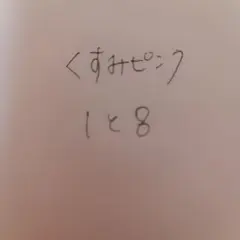 くすみピンク
1と8